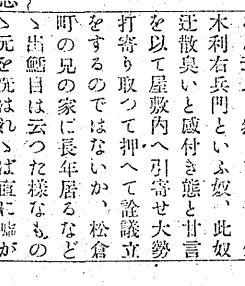 木利右兵門といふ奴、此奴
迂散臭いと感付き態と甘言
を以て屋敷内へ引寄せ大勢
打寄り取つて押へて詮議立
をするのではないか、松倉
町の兄の家に長年居るなど
ゝ出鱈目は云つた様なもの
ゝ元を洗はれゝば直に嘘が